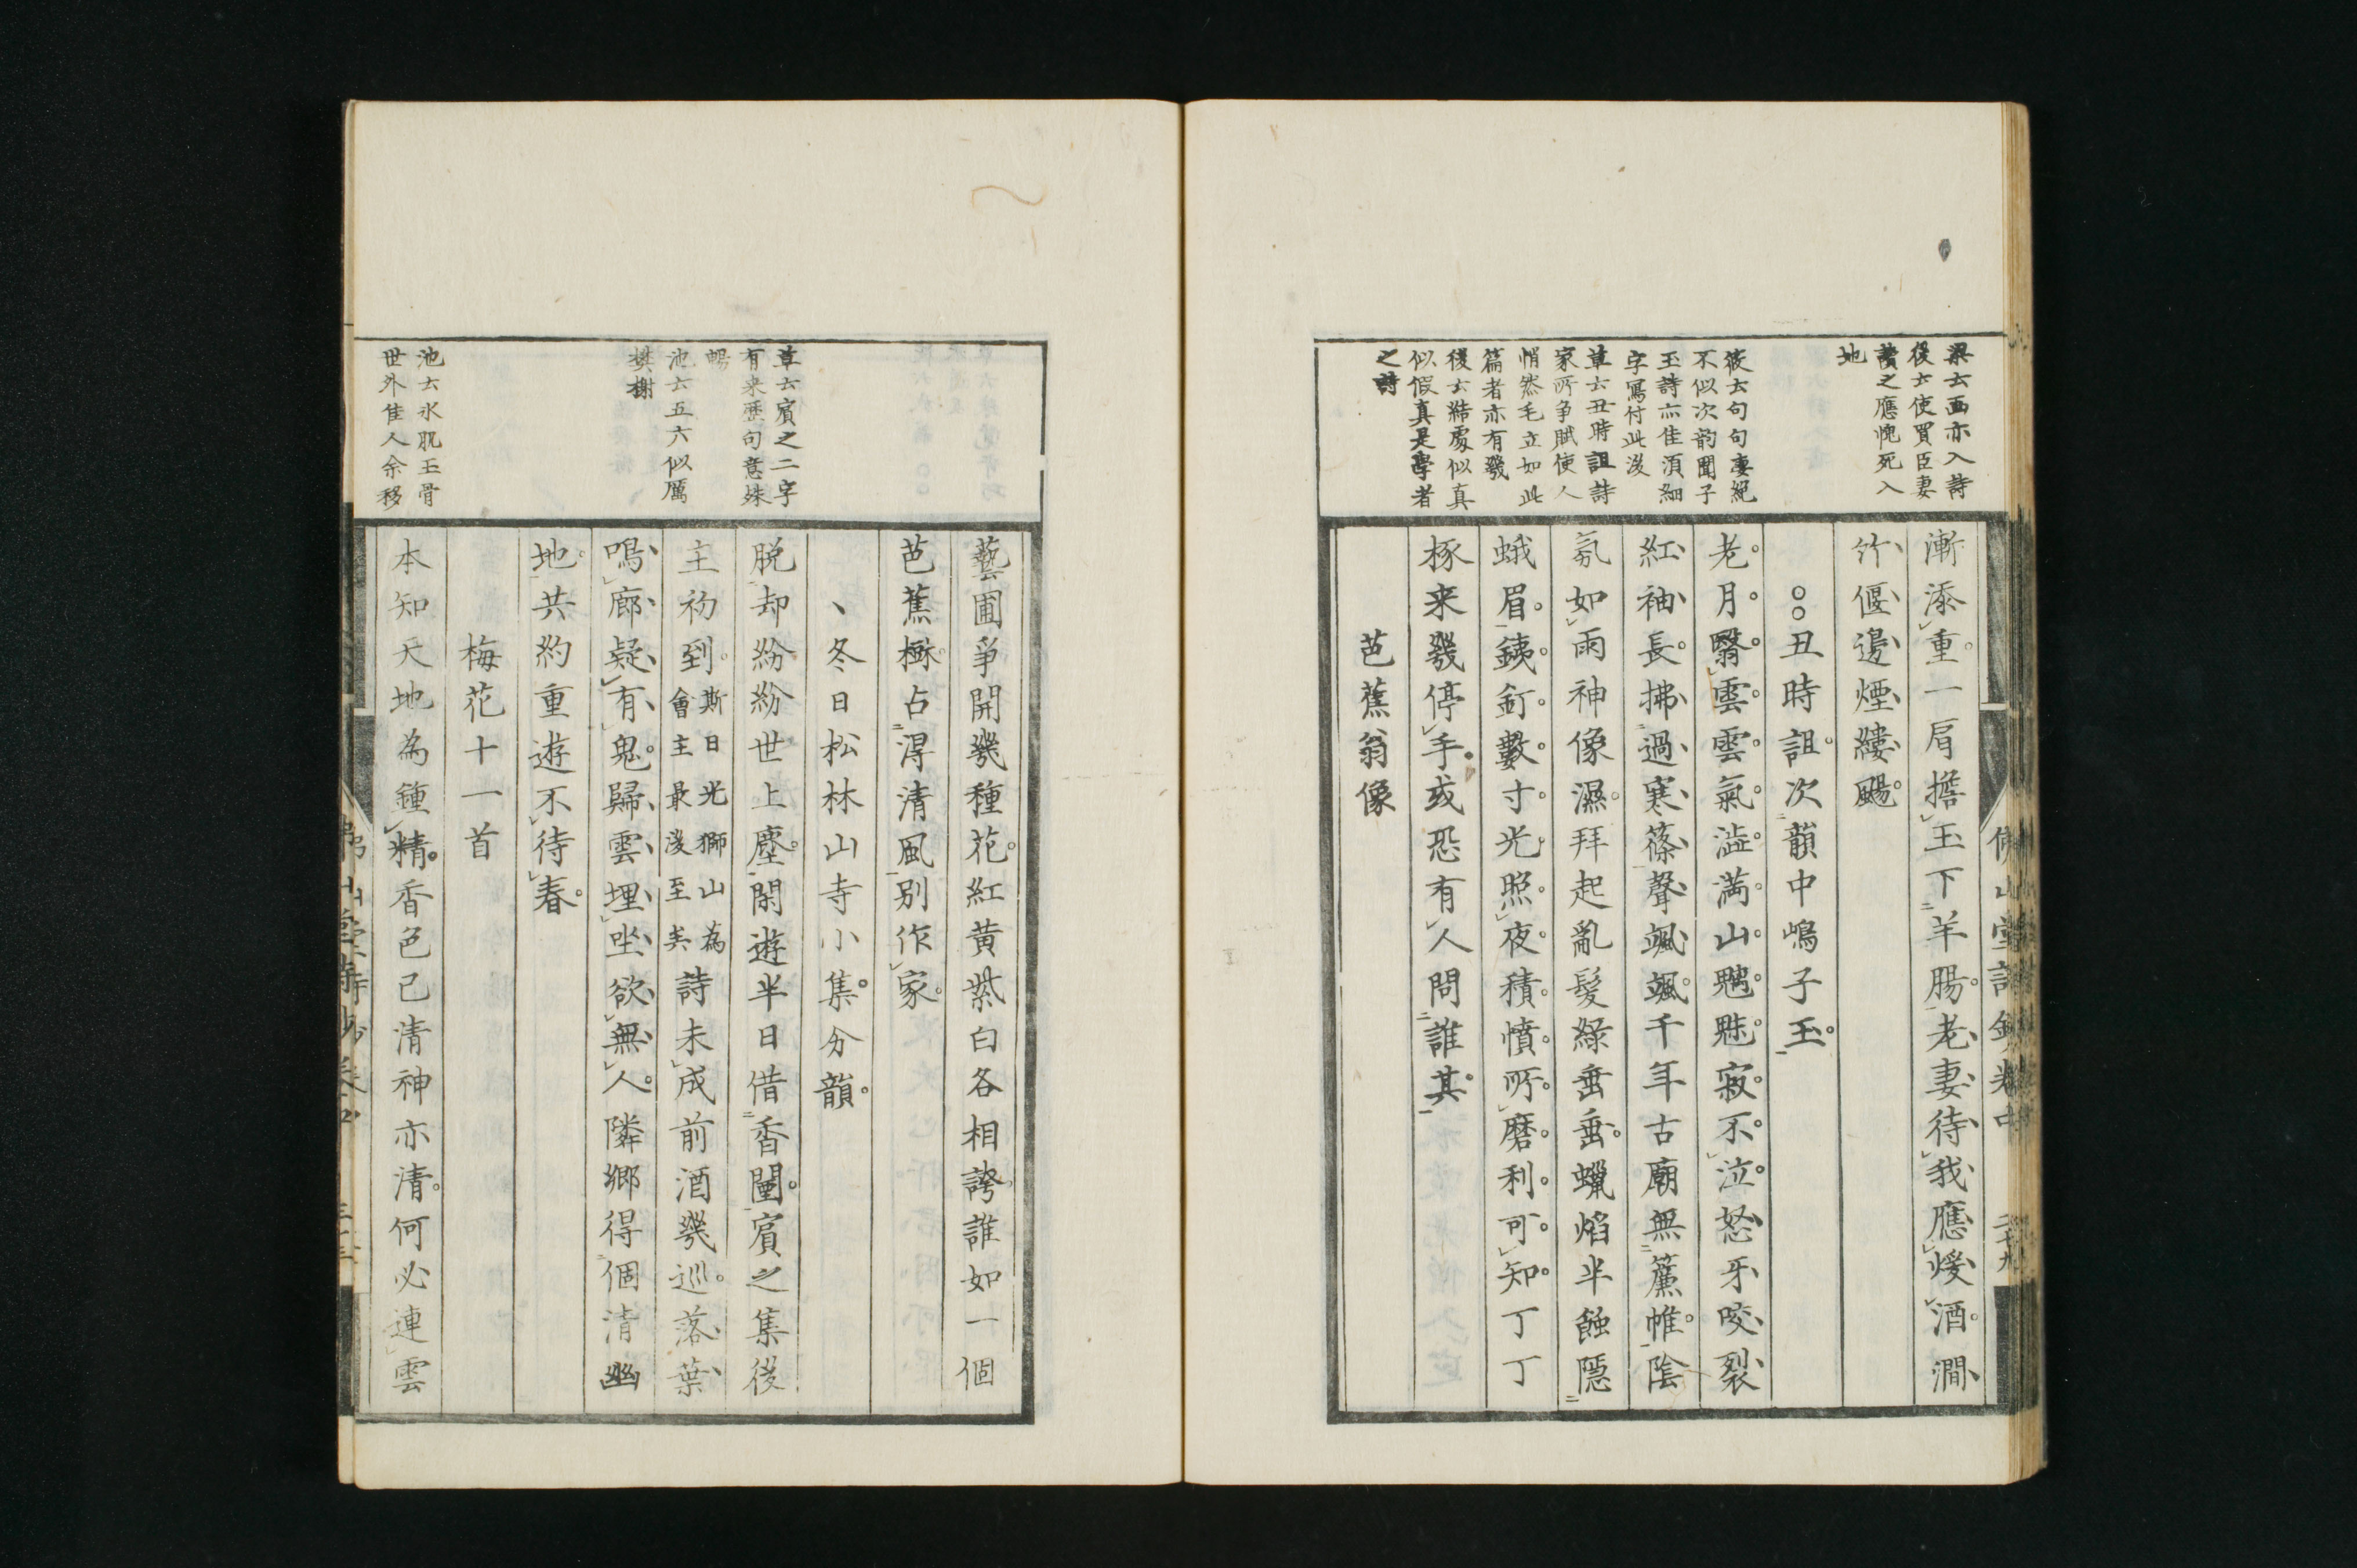 梁云画亦入詩
後云使買臣妻
讀之應愧死入
地
筱云句句凄絶
不似次韵聞子
玉詩亦佳須細
字寫付此後
章云丑時詛詩
家所争賦使人
悄然毛立如此
篇者亦有幾
後云結處似真
似假真是學者
之詩
漸添重一肩擔玉下羊腸老妻待我應煖酒澗
竹偃邊煙縷颺
丑時詛次韻中嶋子玉
老月翳雲雲氣澁満山魍魅寂不泣怒牙咬裂
紅袖長拂過寒篠聲颯颯千年古廟無簾帷陰
氛如雨神像濕拜起亂髮綠垂垂蠟焰半蝕隱
蛾眉銕釘數寸光照夜積憤所磨利可知丁丁
椓来幾停手或恐有人問誰其
芭蕉翁像
佛山堂詩鈔卷中
二十九
藝圃爭開幾種花紅黄紫白各相誇誰如一個
芭蕉樹占淂清風別作家
章云賓之二字
有来歷句意殊
暢
池云五六似厲
樊榭
池云氷肌玉骨
世外佳人余移
冬日松林山寺小集分韻
脱却紛紛世上塵閑遊半日借香闉賓之集後
主初到斯日光獅山為會主最後至矣詩未成前酒幾巡落葉
鳴廊疑有鬼歸雲埋坐欲無人隣郷得個清幽
地共約重遊不待春
梅花十一首
本知天地為鍾精香色已清神亦清何必連雲